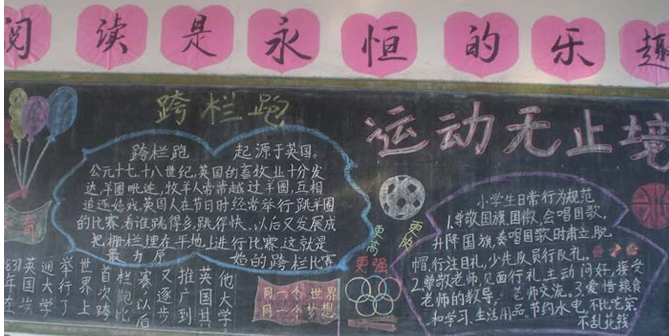 阅读是永恒的乐趣
跨栏跑
跨栏跑 起源于英国。
公元十七、十八世纪,英国的畜牧业十分发
达,羊圈毗连,牧羊人常常越过羊圈,互相
追逐嬉戏,英国人在节日时经常举行跳羊圈
的比赛,看谁跳得多,跳得快、以后又发展成
把栅栏埋在平地上进行比赛,这就是
最为原 的跨栏比赛
运动无止境
更高
更强
同一个世界
同一个梦想
小学生日常行为规范
1.尊敬国旗国徽,会唱国歌,
升降国旗,奏唱国歌时肃立,脱
帽,行注目礼,少先队员行队礼。
2.尊敬老师,见面行礼,主动问好,接受
老师的教导,
3.爱惜粮食
和学习、生活用品,节约水电,不比吃穿
不乱花钱
他大学
推广到
英国其
又逐步
赛以后
栏跑比
首次跨
世界上
举行了
英国